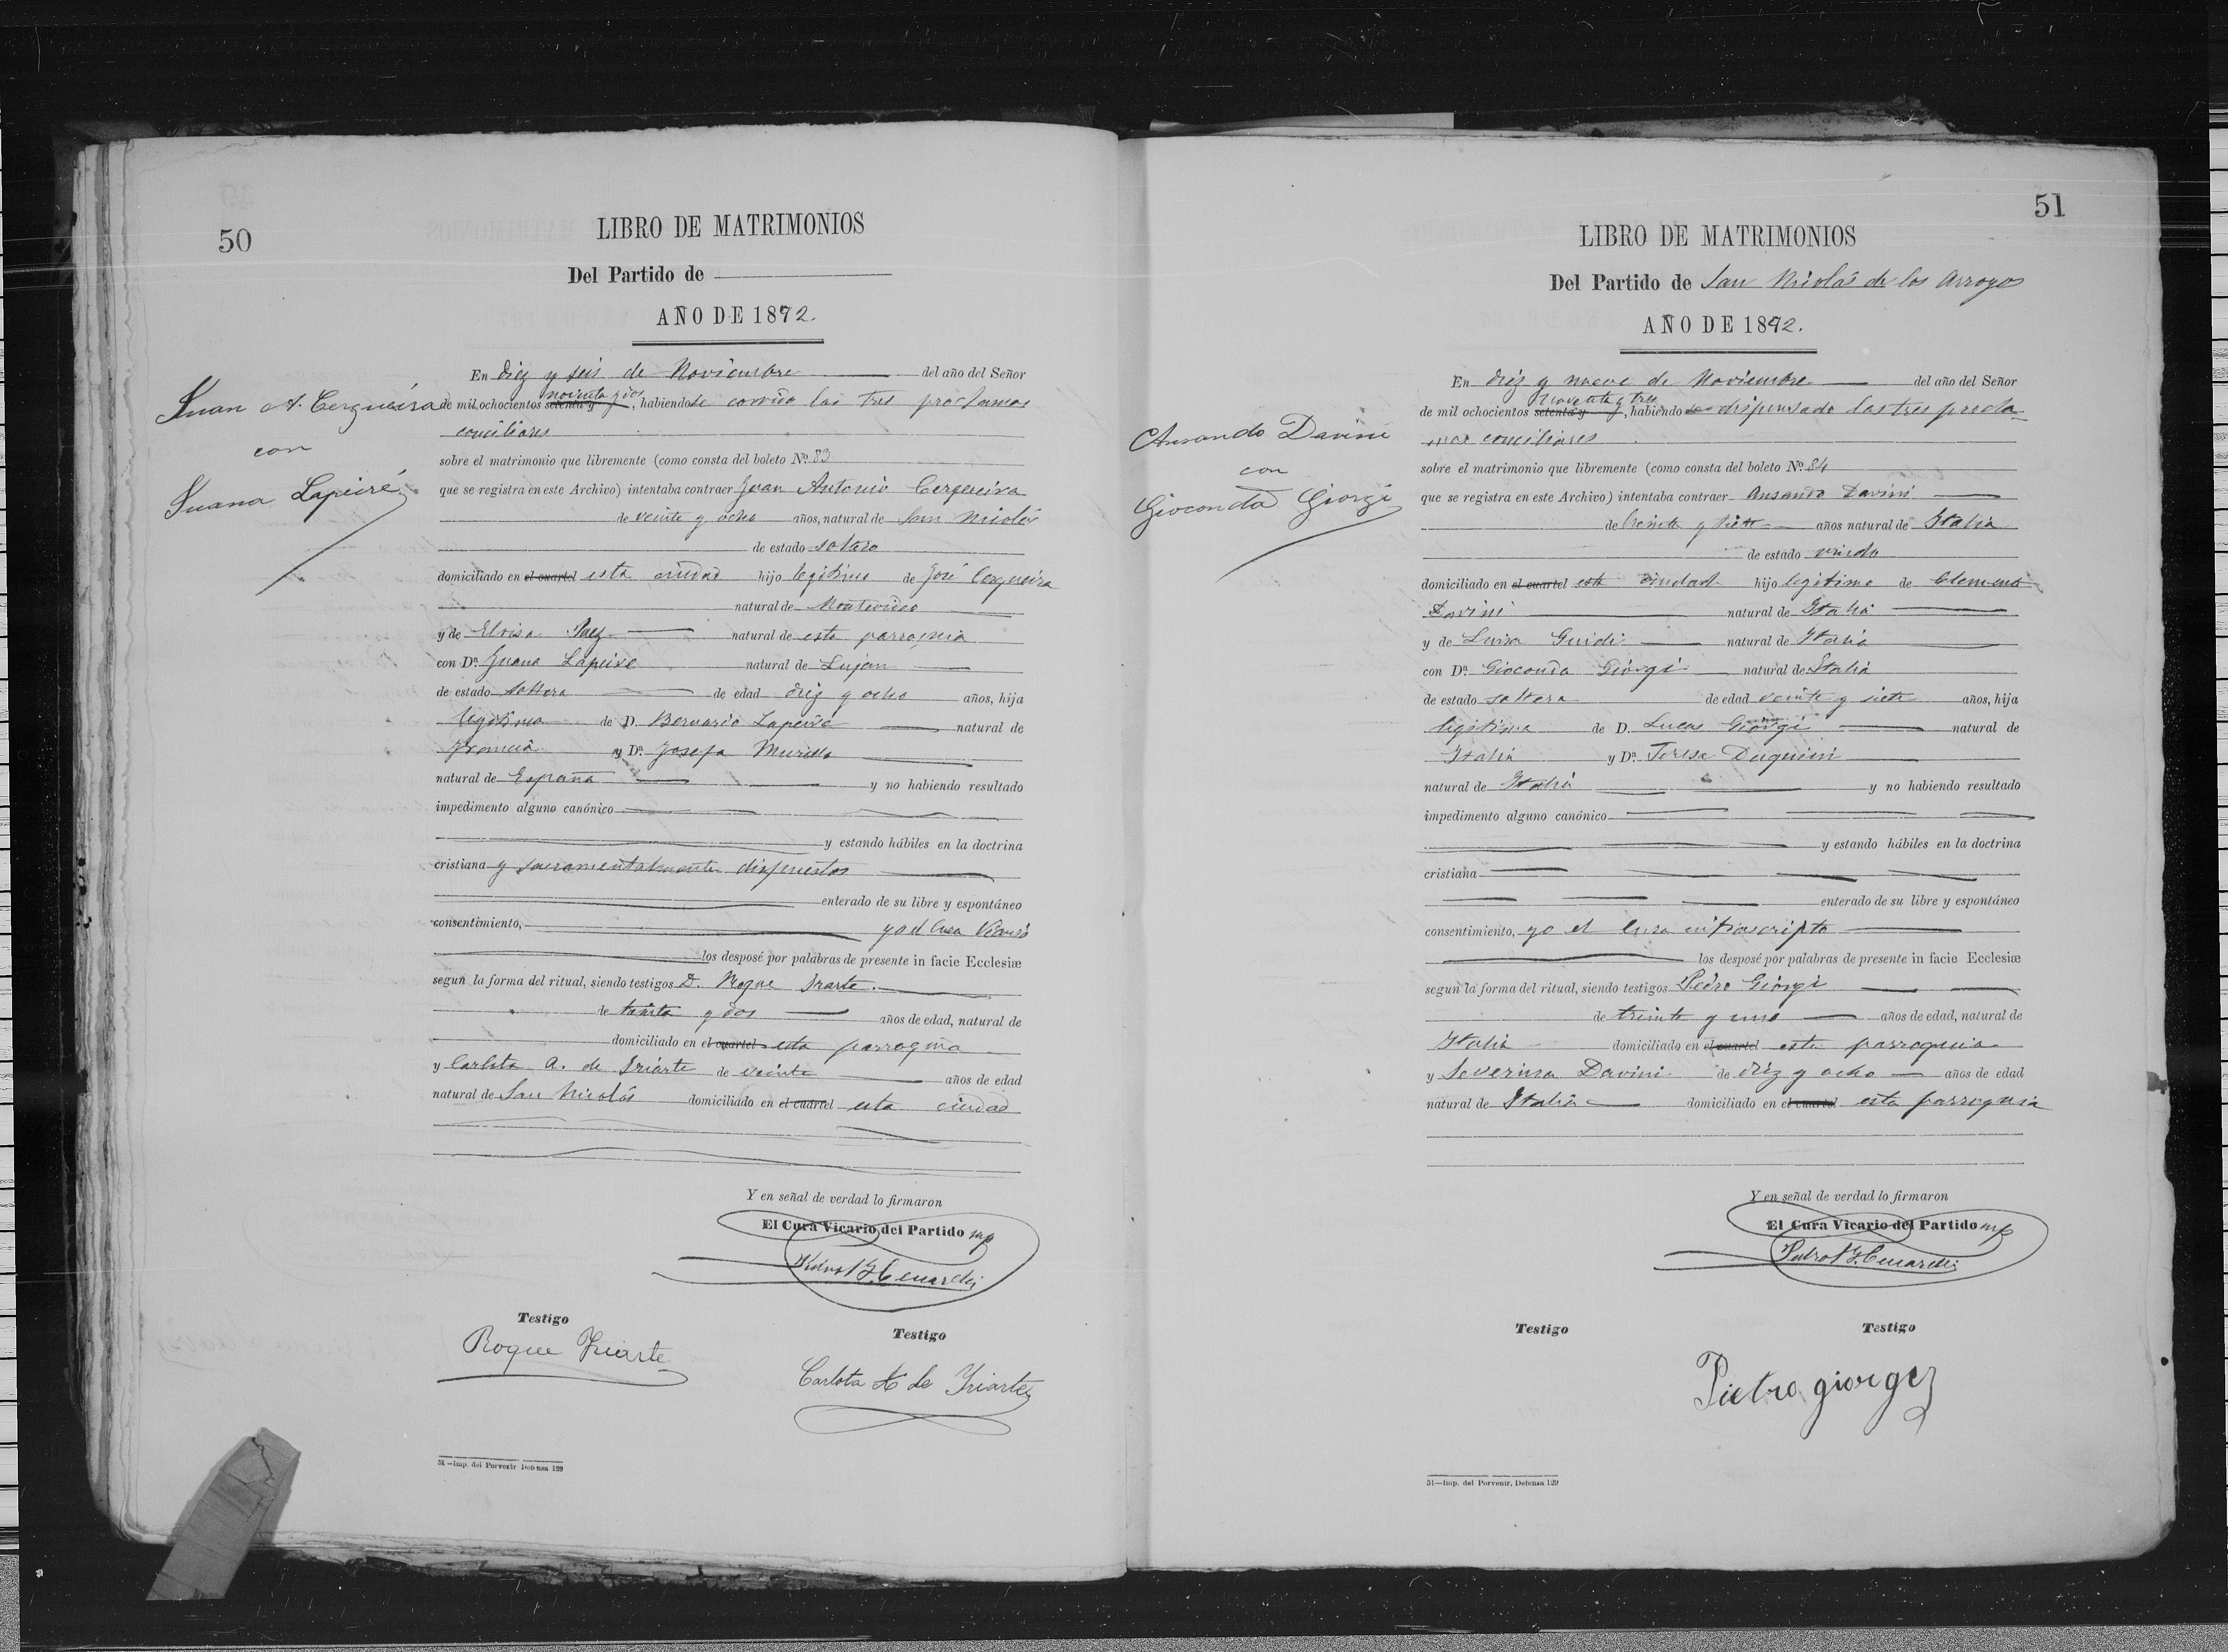 50
LIBRO DE MATRIMONIOS
Del Partido de
AÑO DE 1892.
Juan A. Cergueira
con
Juana Lapeire
En diez y seis de Noviembre del año del Señor
noventa y dos
de mil ochocientos setenta y , habiendose corrido las tres proclamas
conciliares
sobre el matrimonio que libremente (como consta del boleto Nº. 83
que se registra en este Archivo) intentaba contraer Juan Antonio Cergueira
de veinte y ocho años, natural de San Nicolás
de estado soltero
domiciliado en el cuartel esta ciudad hijo legitimo de José Cergueira
natural de Montevideo
y de Eloisa Paez natural de esta parroquia
con Dª. Juana Lapeire natural de Lujan
de estado soltera de edad diez y ocho años, hija
legitima de D. Bernardo Lapeire natural de
Francia y Dª. Josefa Murillo
natural de España y no habiendo resultado
impedimento alguno canónico
y estando hábiles en la doctrina
cristiana y sacramentalmente dispuestos
enterado de su libre y espontáneo
consentimiento, yo el Cura Vicario
los desposé por palabras de presente in facie Ecclesiæ
segun la forma del ritual, siendo testigos D. Roque Iriarte
de treinta y dos años de edad, natural de
domiciliado en el cuartel esta parroquia
y Carlota A. de Iriarte de veinte años de edad
natural de San Nicolás domiciliado en el cuartel esta ciudad
Y en señal de verdad lo firmaron
El Cura Vicario del Partido mp
Testigo
Roque Iriarte
Testigo
Carlota A de Iriarte
51—Imp. del Porvenir Defensa 129
51
LIBRO DE MATRIMONIOS
Del Partido de San Nicolás de los Arroyos
AÑO DE 1892.
Ansando Davini
con
Gioconda Giorgi
En diez y nueve de Noviembre del año del Señor
noventa y tres
de mil ochocientos setenta y , habiendo se dispensado las tres procla
mas conciliares
sobre el matrimonio que libremente (como consta del boleto Nº. 84
que se registra en este Archivo) intentaba contraer Ansando Davini
de treinta y siete años natural de Italia
de estado viudo
domiciliado en el cuartel esta ciudad hijo legitimo de Clemente
Davini natural de Italia
y de Luisa Guidi natural de Italia
con Dª. Gioconda Giorgi natural de Italia
de estado soltera de edad veinte y siete años, hija
legitima de D. Lucas Giorgi natural de
Italia y Dª. Teresa
natural de Italia y no habiendo resultado
impedimento alguno canónico
y estando hábiles en la doctrina
cristiana
enterado de su libre y espontáneo
consentimiento, yo el cura infrascripto
los desposé por palabras de presente in facie Ecclesiæ
segun la forma del ritual, siendo testigos Pedro Giorgi
de treinta y uno años de edad, natural de
Italia domiciliado en el cuartel esta parroquia
y Severina Davini de diez y ocho años de edad
natural de Italia domiciliado en el cuartel esta parroquia
Y en señal de verdad lo firmaron
El Cura Vicario del Partido mp
Testigo
Testigo
Pietro giorgi
51—Imp. del Porvenir, Defensa 129